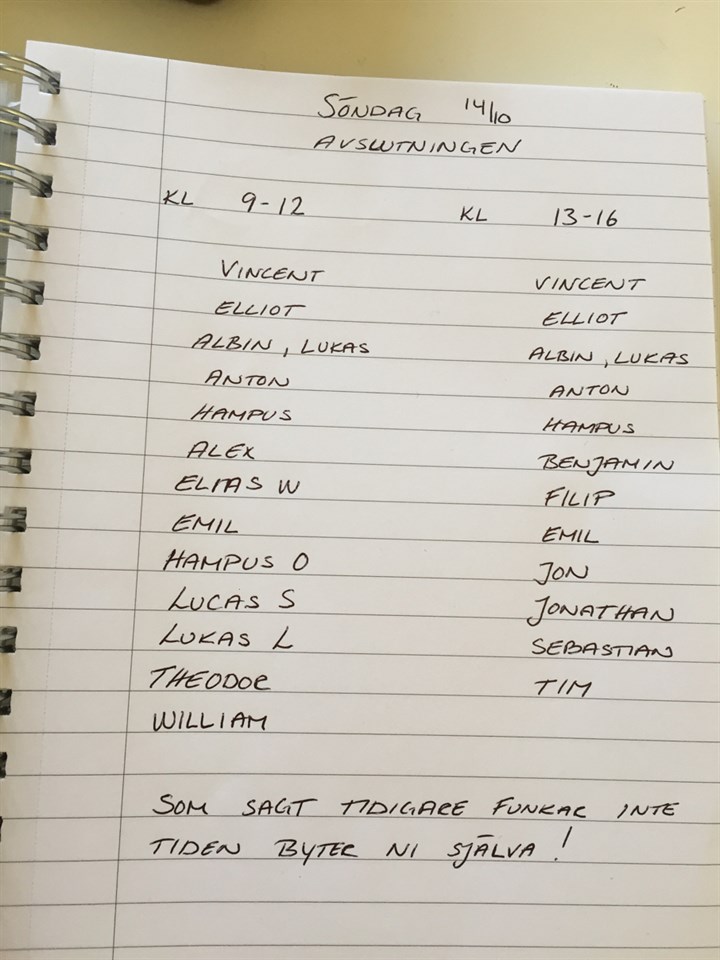 SÖNDAG 14/10
AVSLUTNINGEN
KL 9-12
VINCENT
ELLIOT
ALBIN, LUKAS
ANTON
HAMPUS
ALEX
ELIAS W
EMIL
HAMPUS O
LUCAS S
LUKAS L
THEODOR
WILLIAM
KL 13-16
VINCENT
ELLIOT
ALBIN, LUKAS
ANTON
HAMPUS
BENJAMIN
FILIP
EMIL
JON
JONATHAN
SEBASTIAN
TIM
SOM SAGT TIDIGARE FUNKAR INTE
TIDEN BYTER NI SJÄLVA!